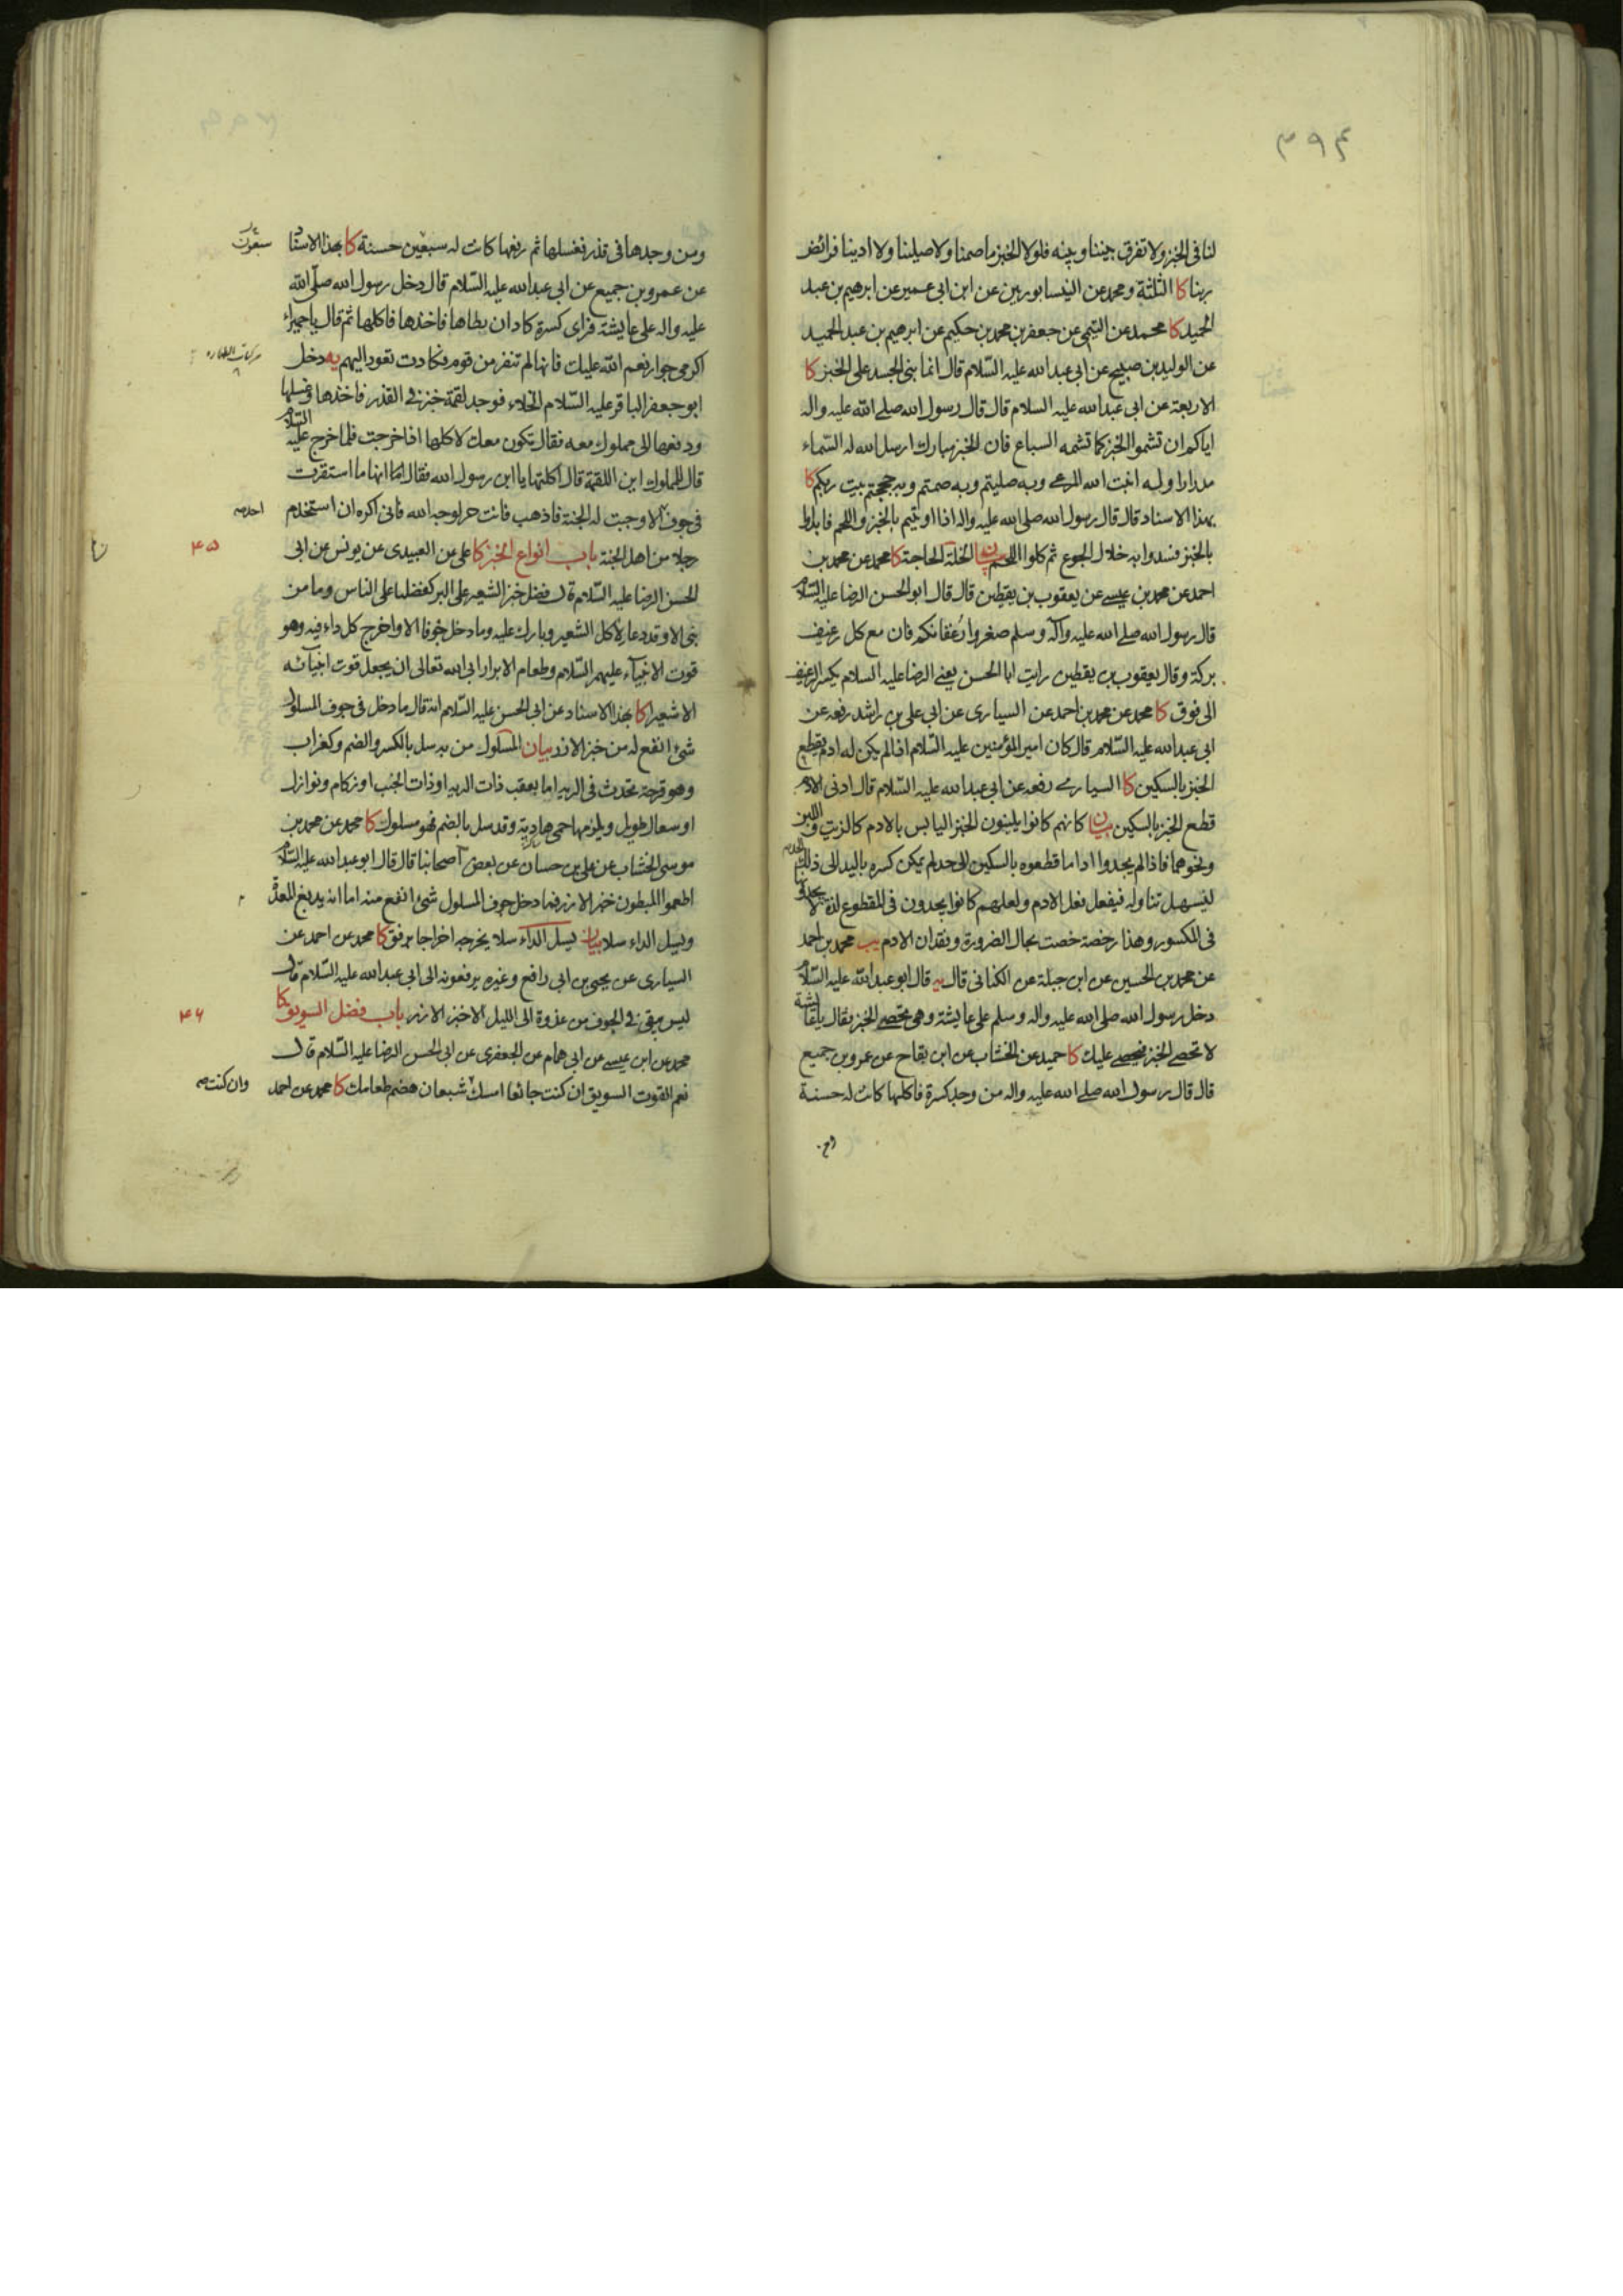 ٣٩۴
لنا فى الخبز ولا تفرق بيننا وبينه فلولا الخبز ما صمنا ولا صلينا ولا ادينا فرائض
ربنا كا الثلثة ومحمد عن النيسابوريين عن ابن ابى عمير عن ابرهيم بن عبد
الحميد كا محمد عن التيمى عن جعفر بن محمد بن حكيم عن ابرهيم بن عبد الحميد
عن الوليد بن صبيح عن ابى عبد الله عليه السّلام قال انما بنى الجسد على الخبز كا
الاربعة عن ابى عبد الله عليه السلام قال قال رسول الله صلى الله عليه واله
اياكم ان تشموا الخبز كما تشمه السباع فان الخبز مبارك ارسل الله له السّماء
مدرارا وله انبت الله المرعى وبه صليتم وبه صمتم وبه حججتم بيت ربكم كا
بهذا الاسناد قال قال رسول الله صلى الله عليه واله اذا اوتيتم بالخبز واللحم فابدؤا
بالخبز فسدوا به خلال الجوع ثم كلوا اللحم بيان الخلة الحاجة كا محمد عن محمد بن
احمد عن محمد بن عيسى عن يعقوب بن يقطين قال قال ابو الحسن الرضا عليه السّلام
قال رسول الله صلى الله عليه وآله وسلم صغروا رغفانكم فان مع كل رغيف
بركة وقال يعقوب بن يقطين رايت ابا الحسن يعنى الرضا عليه السلام يكسر الرغيف
الى فوق كا محمد عن محمد بن احمد عن السيارى عن ابى على بن راشد رفعه عن
ابى عبد الله عليه السّلام قال كان امير المؤمنين عليه السّلام اذا لم يكن له ادم يقطع
الخبز بالسكين كا السيارى رفعه عن ابى عبد الله عليه السّلام قال ادنى الادم
قطع الخبز بالسكين بيان كانهم كانوا يلينون الخبز اليابس بالادم كالزيت واللبن
ونحوهما فاذا لم يجدوا اداما قطعوه بالسكين الى حد لم يمكن كسره باليد الى ذلك الحد
ليسهل تناوله فيفعل فعل الادم ولعلهم كانوا يجدون فى المقطوع لذة لا يجدونها
فى المكسور وهذا رخصة خصت بحال الضرورة وفقدان الادم يب محمد بن احمد
عن محمد بن الحسين عن ابن جبلة عن الكنانى قال يه قال ابو عبد الله عليه السّلام
دخل رسول الله صلى الله عليه واله وسلم على عايشة وهى تحصى الخبز فقال يا عايشة
لا تحصى الخبز فيحصى عليك كا حميد عن الخشاب عن ابن بقاح عن عمرو بن جميع
قال قال رسول الله صلى الله عليه واله من وجد كسرة فاكلها كانت له حسنة
ومن وجدها فى قذر فغسلها ثم رفعها كانت له سبعين حسنة كا بهذا الاسناد
سبعون
عن عمرو بن جميع عن ابى عبد الله عليه السّلام قال دخل رسول الله صلّى الله
عليه واله على عايشة فراى كسرة كاد ان يطاها فاخذها فاكلها ثم قال يا حميراء
اكرمى جوار نعم الله عليك فانها لم تنفر من قوم فكادت تعود اليهم يه دخل
ابو جعفر الباقر عليه السّلام الخلاء فوجد لقمة خبز فى القذر فاخذها وغسلها
ودفعها الى مملوك معه فقال تكون معك لاكلها اذا خرجت فلما خرج عليه السّلام
قال للمملوك اين اللقمة قال اكلتها يا ابن رسول الله فقال انها ما استقرت
فى جوف الا وجبت له الجنة فاذهب فانت حر لوجه الله فانى اكره ان استخدم
احد
رجلا من اهل الجنة باب انواع الخبز كا على عن العبيدى عن يونس عن ابى
۴۵
الحسن الرضا عليه السّلام قال فضل خبز الشعير على البر كفضلنا على الناس وما من
نبى الا وقد دعا لاكل الشعير وبارك عليه وما دخل جوفا الا واخرج كل داء فيه وهو
قوت الانبياء عليهم السّلام وطعام الابرار ابى الله تعالى ان يجعل قوت انبيائه
الا شعيرا كا بهذا الاسناد عن ابى الحسن عليه السّلام انه قال ما دخل فى جوف المسلول
شئ انفع له من خبز الارز بيان المسلول من به سل بالكسر والضم وكغراب
وهو قرحة تحدث فى الرية اما بعقب ذات الرية او ذات الجنب او زكام ونوازل
او سعال طويل ويلزمها حمى هادية وقد سل بالضم فهو مسلول كا محمد عن محمد بن
موسى الخشاب عن على بن حسان عن بعض اصحابنا قال قال ابو عبد الله عليه السّلام
اطعموا المبطون خبز الارز فما دخل جوف المسلول شئ انفع منه اما انه يدبغ المعدة
ويسل الداء سلا بيان يسل الداء سلا يخرجه اخراجا برفق كا محمد عن احمد عن
السيارى عن يحيى بن ابى رافع وغيره يرفعونه الى ابى عبد الله عليه السّلام قال
ليس يبقى فى الجوف من غدوة الى الليل الا خبز الارز باب فضل السويق كا
۴۶
محمد عن ابن عيسى عن ابى همام عن الجعفرى عن ابى الحسن الرضا عليه السّلام قال
نعم القوت السويق ان كنت جائعا امسك شبعان هضم طعامك كا محمد عن احمد
وان كنت